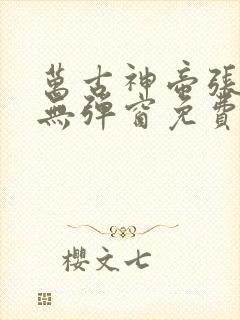 萬古神帝張
無彈窗免費
櫻文七